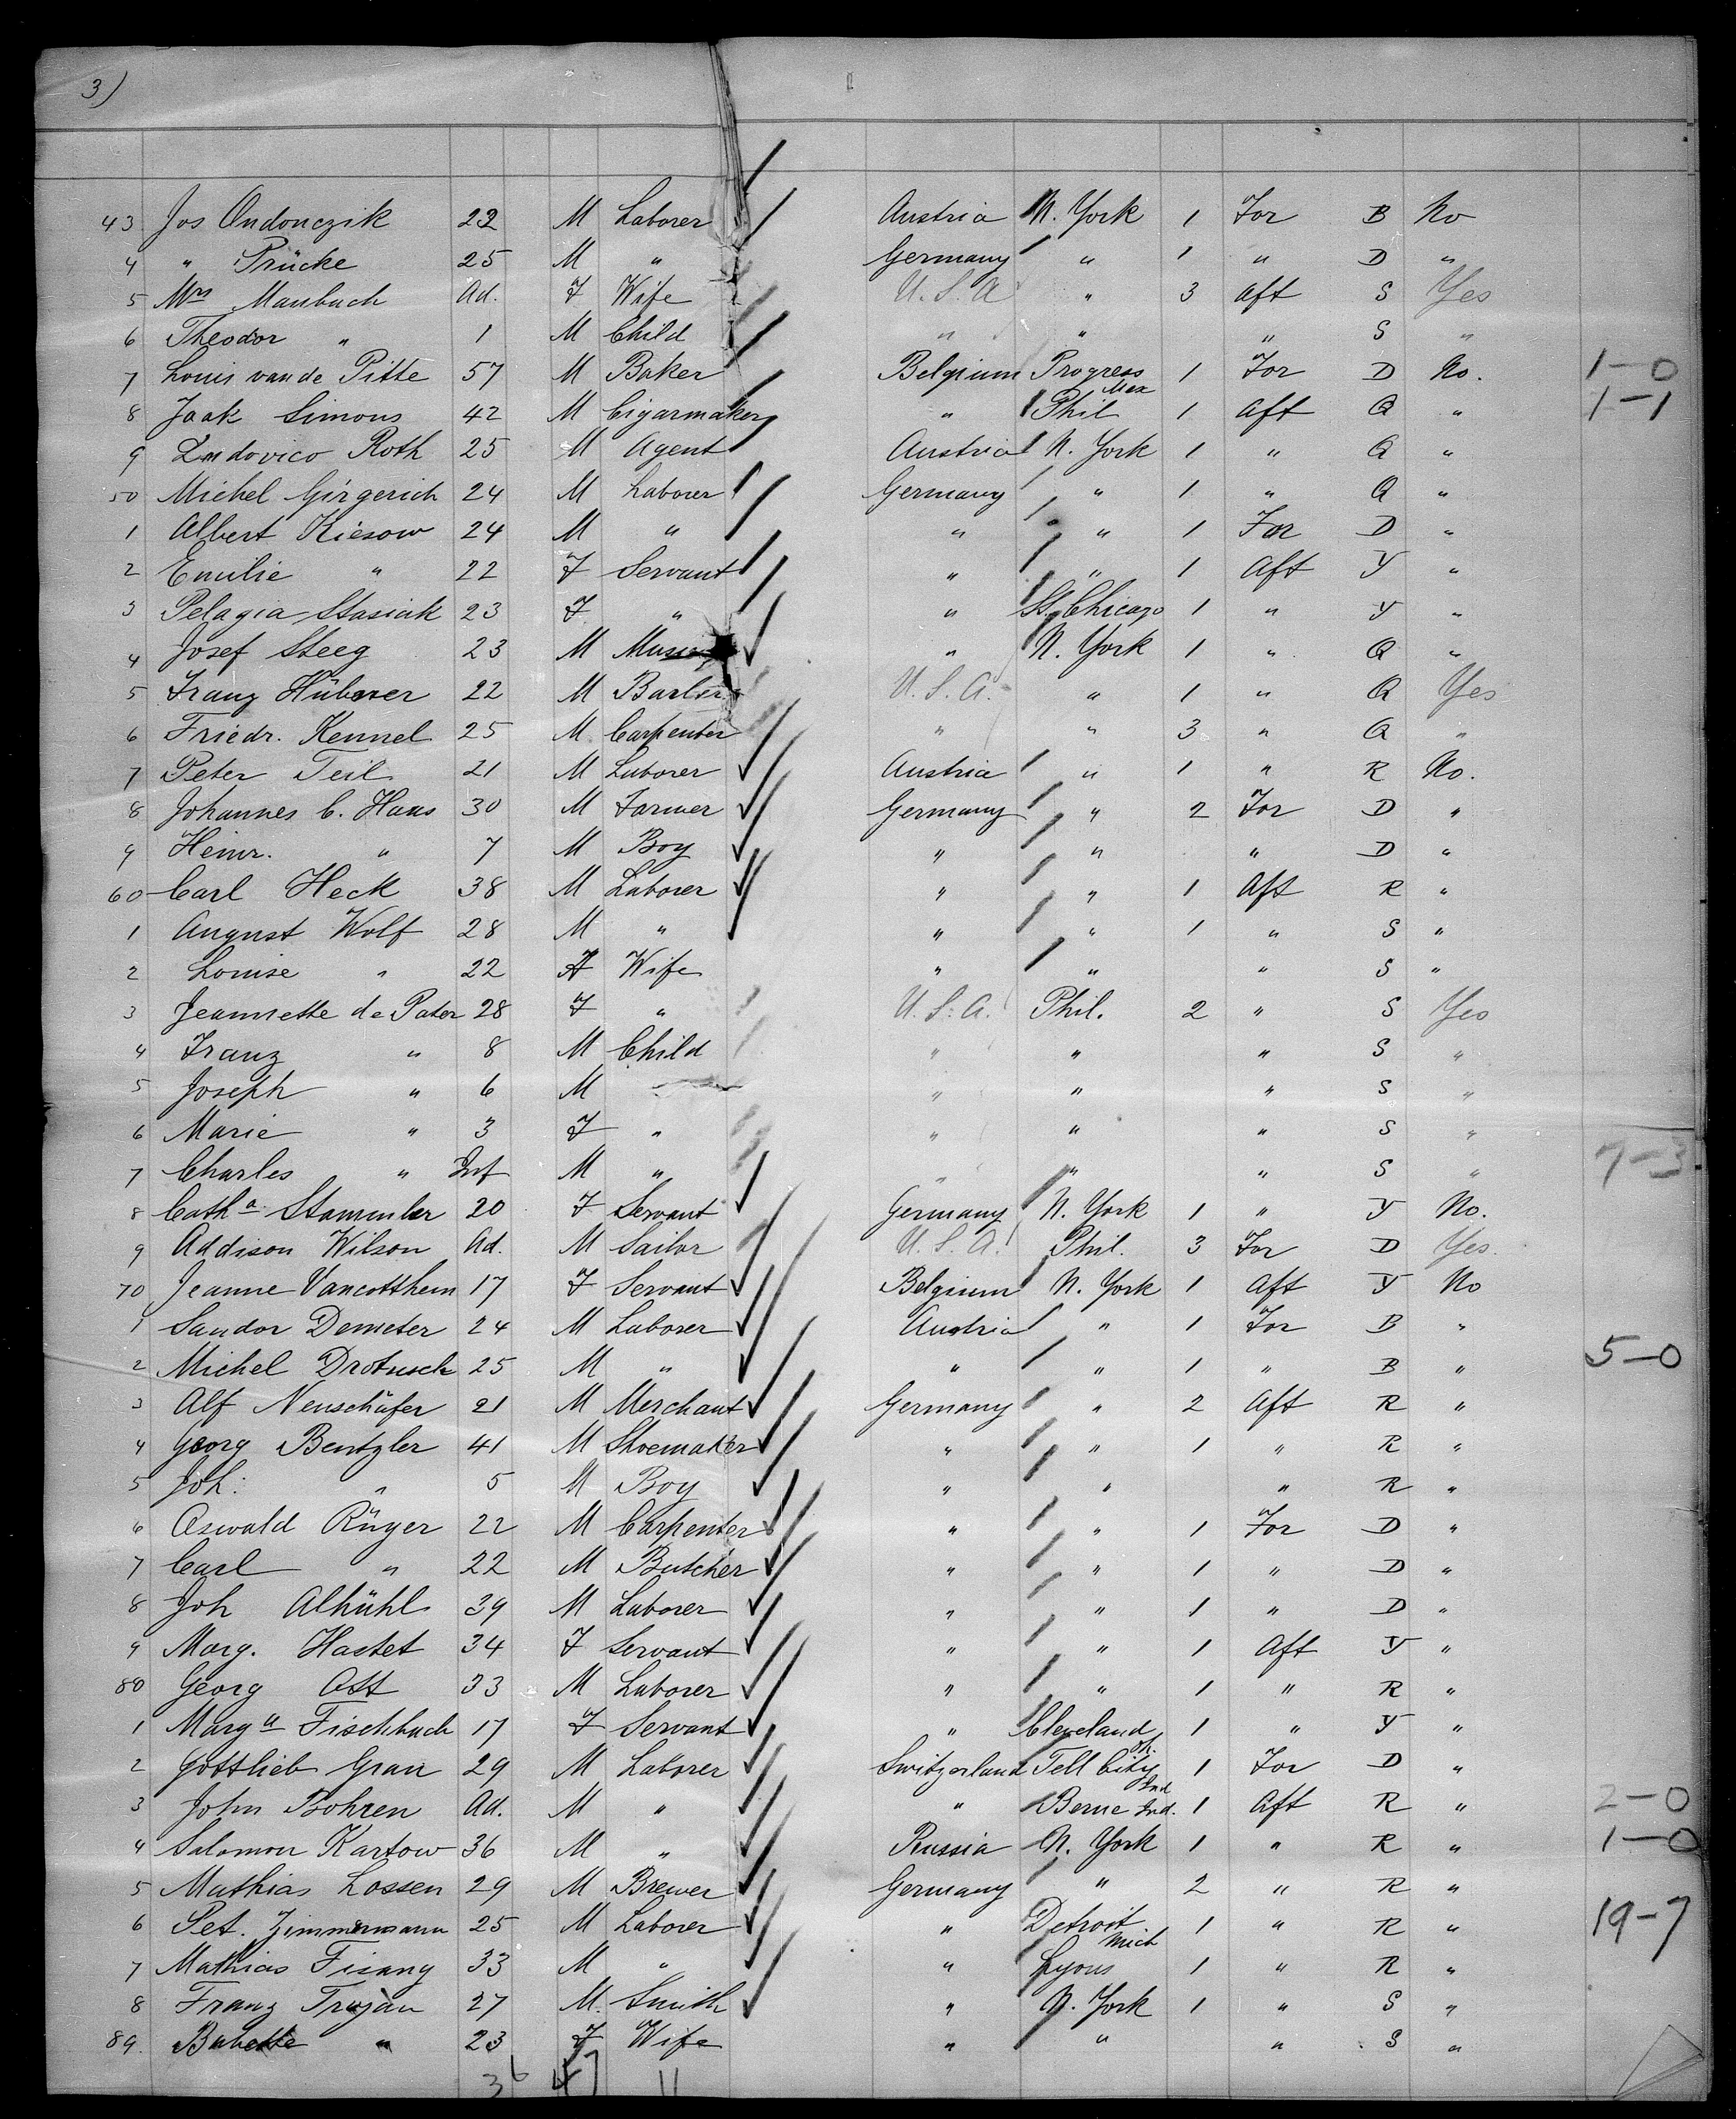 3)
43 Jos Ondonczik 22 M Laborer Austria N. York 1 For B No
4 " Prücke 25 M " Germany " 1 " D "
5 Mrs Maubach Ad. F Wife U.S.A " 3 Aft S Yes
6 Theodor " 1 M Child " " " S "
7 Louis van de Pitte 57 M Baker Belgium Progress Mex 1 For D No. 1-0
8 Jaak Simons 42 M Cigarmaker " Phil 1 Aft Q " 1-1
9 Ludovico Roth 25 M Agent Austria N. York 1 " Q "
50 Michel Girgerich 24 M Laborer Germany " 1 " Q "
1 Albert Kiesow 24 M " " " 1 For D "
2 Emilie " 22 F Servant " " 1 Aft Y "
3 Pelagia Stasiak 23 F " " Chicago 1 " Y "
4 Josef Steeg 23 M " N. York 1 " Q "
5 Franz Hübner 22 M Barber U.S.A. " 1 " Q Yes
6 Friedr. Kennel 25 M Carpenter " " 3 " Q "
7 Peter Teil 21 M Laborer Austria " 1 " R No.
8 Johannes C. Haas 30 M Farmer Germany " 2 For D "
9 Heinr. " 7 M Boy " " " D "
60 Carl Heck 38 M Laborer " " 1 Aft R "
1 August Wolf 28 M " " " 1 " S "
2 Louise " 22 F Wife " " " S "
3 Jeannette de Pater 28 F " U.S.A. Phil. 2 " S Yes
4 Franz " 8 M Child " " " S "
5 Joseph " 6 M " " " S "
6 Marie " 3 F " " " " S "
7 Charles " Inf M " " " " S " 7-3
8 Catha Stammler 20 F Servant Germany N. York 1 " Y No.
9 Addison Wilson Ad. M Sailor U.S.A. Phil. 3 For D Yes.
70 Jeanne Vancotthem 17 F Servant Belgium N. York 1 Aft Y No
1 Sandor Demeter 24 M Laborer Austria " 1 For B "
2 Michel Drotusch 25 M " " " 1 " B " 5-0
3 Alf Neuschäfer 21 M Merchant Germany " 2 Aft R "
4 Georg Bentzler 41 M Shoemaker " " 1 " R "
5 Joh: " 5 M Boy " " " R "
6 Oswald Rüger 22 M Carpenter " " 1 For D "
7 Carl " 22 M Butcher " " 1 " D "
8 Joh Alhühl 39 M Laborer " " 1 " D "
9 Marg. Hastet 34 F Servant " " 1 Aft Y "
80 Georg Ott 33 M Laborer " " 1 " R "
1 Marga Fischbach 17 F Servant " Cleveland Oh. 1 " Y "
2 Gottlieb Grau 29 M Laborer Switzerland Tell City Ind 1 For D "
3 John Bohren Ad. M " " Berne Ind. 1 Aft R " 2-0
4 Salomon Kartow 36 M " Russia N. York 1 " R " 1-0
5 Mathias Lossen 29 M Brewer Germany " 2 " R "
6 Pet. Zimmermann 25 M Laborer " Detroit Mich 1 " R " 19-7
7 Mathias Fisang 33 M " " Lyons 1 " R "
8 Franz Trojan 27 M. Smith " N. York 1 " S "
89. Babette " 23 F Wife " " " S "
36 47 11